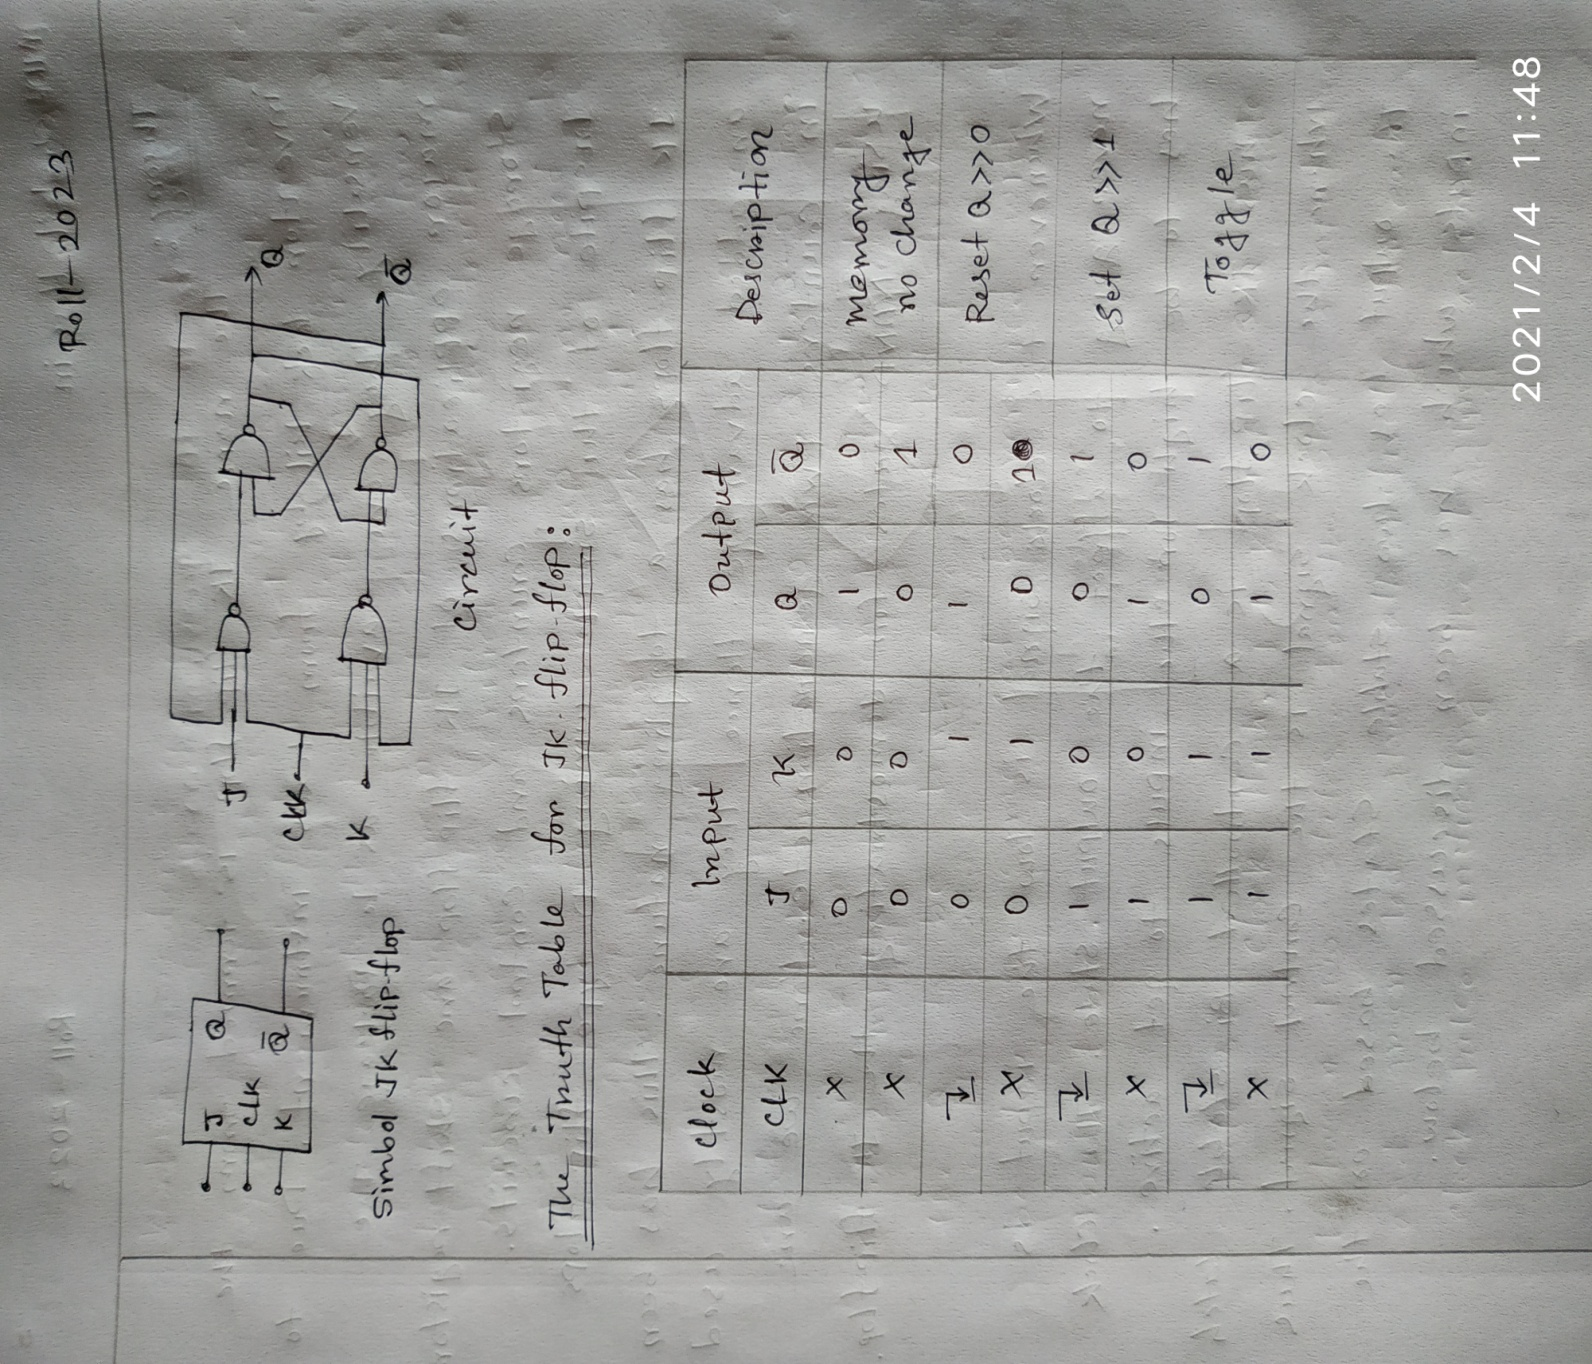 Roll-2023
J Q
CLK
K Q̄
Simbol JK flip-flop
J
CLK
K
Q
Q̄
Circuit
The Truth Table for JK flip-flop:
Clock Input Output Description
CLK J K Q Q̄
X 0 0 1 0 Memory
X 0 0 0 1 no change
↓ 0 1 1 0 Reset Q>>0
X 0 1 0 1
↓ 1 0 0 1 Set Q>>1
X 1 0 1 0
↓ 1 1 0 1 Toggle
X 1 1 1 0
2021/2/4 11:48